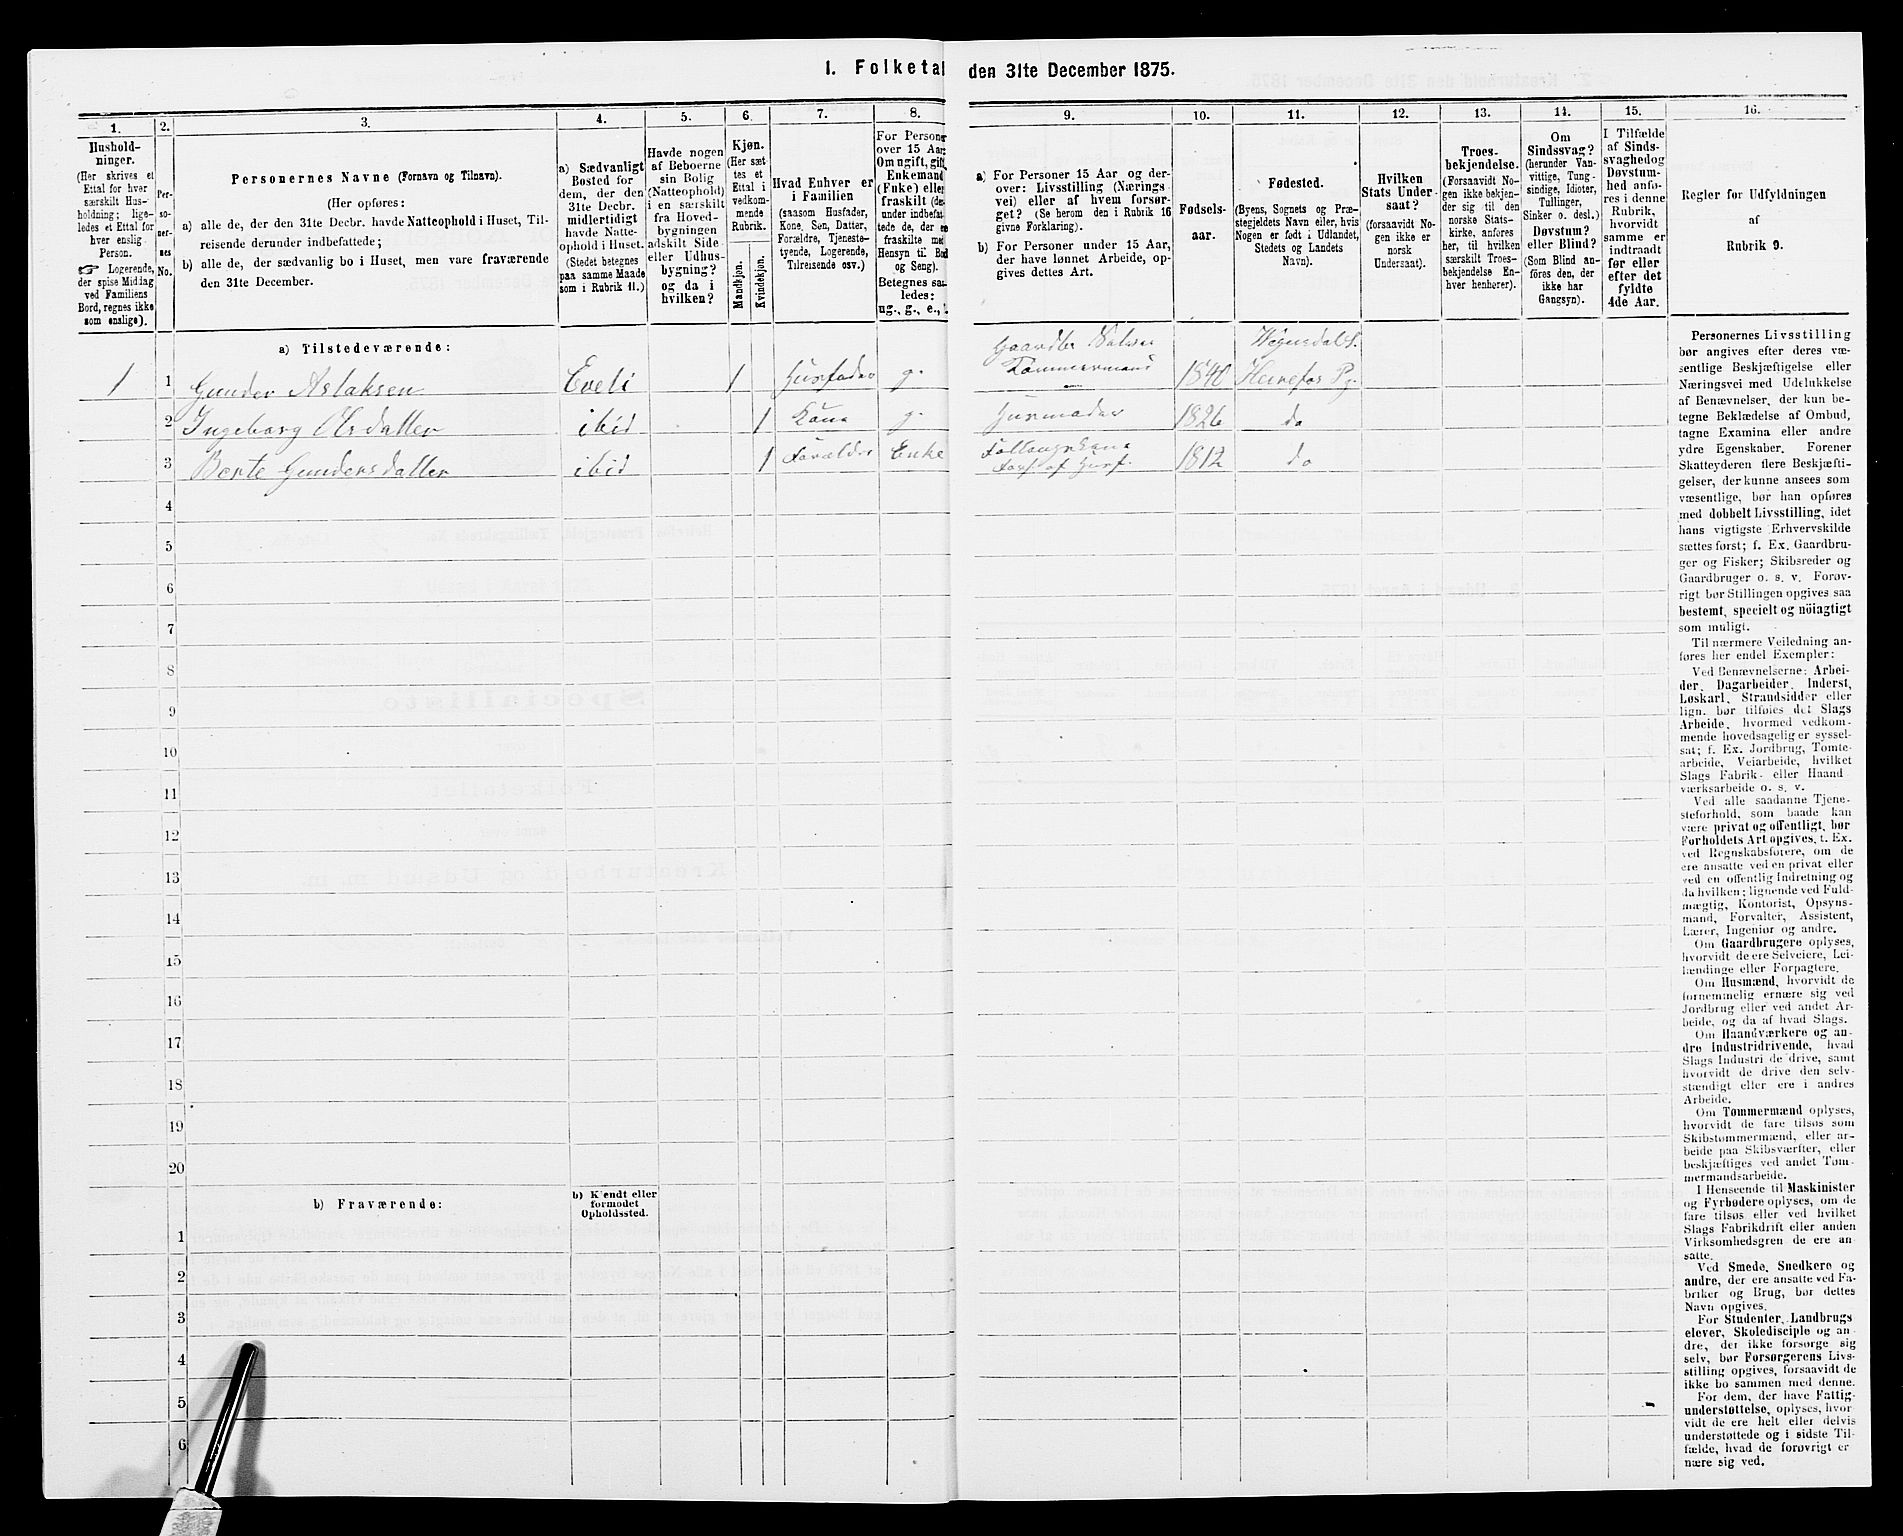 I. Folketal den 31te December 1875.
1.
Hushold-
ninger.
(Her skrives et
Ettal for hver
særskilt Hus-
holdning; lige-
ledes et Ettal for
hver enslig
Person.
☞ Logerende,
der spise Middag
ved Familiens
Bord, regnes ikke
som enslige).
2.
Per-
so-
ner-
nes
No.
3.
Personernes Navne (Fornavn og Tilnavn).
(Her opføres:
a) alle de, der den 31te Decbr. havde Natteophold i Huset, Til-
reisende derunder indbefattede;
b) alle de, der sædvanlig bo i Huset, men vare fraværende
den 31te December.
4.
a) Sædvanligt
Bosted for
dem, der den
31te Decbr.
midlertidigt
havde Natte-
ophold i Huset.
(Stedet betegnes
paa samme Maade
som i Rubrik 11.)
5.
Havde nogen
af Beboerne
sin Bolig
(Natteophold)
i en særskilt
fra Hoved-
bygningen
adskilt Side-
eller Udhus-
bygning?
og da i
hvilken?
6.
Kjøn.
(Her sæt-
tes et
Ettal i
vedkom-
mende
Rubrik.
Mandkjøn.
Kvindekjøn.
7.
Hvad Enhver er
i Familien
(saasom Husfader,
Kone, Søn, Datter,
Forældre, Tjeneste-
tyende, Logerende,
Tilreisende osv.)
8.
For Persone
over 15 Aar:
Om ugift, gift,
Enkemand
(Enke) eller
fraskilt (de-
under indbefat
tede de, der e
fraskilte med
Hensyn til Bo
og Seng).
Betegnes sa
ledes:
ug., g., e.,
9.
a) For Personer 15 Aar og der-
over: Livsstilling (Nærings-
vei) eller af hvem forsør-
get? (Se herom den i Rubrik 16
givne Forklaring).
b) For Personer under 15 Aar,
der have lønnet Arbeide, op-
gives dettes Art.
10.
Fødsels-
aar.
11.
Fødested.
(Byens, Sognets og Præ-
stegjeldets Navn eller, hvis
Nogen er født i Udlandet,
Stedets og Landets
Navn).
12.
Hvilken
Stats Under-
saat?
(forsaavidt No-
gen ikke er
norsk
Undersaat).
13.
Troes-
bekjendelse.
(Forsaavidt No-
gen ikke bekjen-
der sig til den
norske Stats-
kirke, anføres
her, til hvilken
særskilt Troes-
bekjendelse En-
hver henhører).
14.
Om
Sindssvag?
(herunder Van-
vittige, Tung-
sindige, Idioter,
Tullinger,
Sinker o. desl.)
Døvstum?
eller Blind?
(Som Blind an-
føres den, der
ikke har
Gangsyn).
15.
I Tilfælde
af Sinds-
svaghed og
Døvstum-
hed anfø-
res i denne
Rubrik,
hvorvidt
samme er
indtraadt
før eller
efter det
fyldte
4de Aar.
16.
Regler for Udfyldningen
af
Rubrik 9.
a) Tilstedeværende:
1 1 Gunder Aslaksen Eveli 1 Husfader g. Gaardbr Tømmermand 1840 Heirefos Pg.
2 Ingeborg Olsdatter ibid 1 Kone g. Husmoder 1826 do
3 Berte Gundersdatter ibid 1 Forælder Enke Fors. af Husf. 1812 do
4
5
6
7
8
9
10
11
12
13
14
15
16
17
18
19
20
b) Fraværende:
b) Kjendt eller
formodet
Opholdssted.
1
2
3
4
5
6
Personernes Livsstilling
bør angives efter deres væ-
sentlige Beskjæftigelse eller
Næringsvei med Udelukkelse
af Benævnelser, der kun be-
tegne Beklædelse af Ombud,
tagne Examina eller andre
ydre Egenskaber. Forener
Skatteyderen flere Beskjæfti-
gelser, der kunne ansees som
væsentlige, bør han opføres
med dobbelt Livsstilling, idet
hans vigtigste Erhvervskilde
sættes først; f. Ex. Gaardbru-
ger og Fisker; Skibsreder og
Gaardbruger o. s. v. Forøv-
rigt bør Stillingen opgives saa
bestemt, specielt og nöiagtigt
som muligt.
Til nærmere Veiledning an-
føres her endel Exempler:
Ved Benævnelserne: Arbei-
der, Dagarbeider, Inderst,
Løskarl, Strandsidder eller
lign. bør tilføies det Slags
Arbeide, hvormed vedkom-
mende hovedsagelig er syssel-
sat; f. Ex. Jordbrug, Tomte-
arbeide, Veiarbeide, hvilket
Slags Fabrik- eller Haand
værksarbeide o. s. v.
Ved alle saadanne Tjene-
steforhold, som baade kan
være privat og offentligt, bør
Forholdets Art opgives, t. Ex.
ved Regnskabsførere, om de
ere ansatte ved en privat eller
ved en offentlig Indretning og
da hvilken; lignende ved Fuld-
mægtig, Kontorist, Opsyns-
mand, Forvalter, Assistent,
Lærer, Ingeniør og andre.
Om Gaardbrugere oplyses,
hvorvidt de ere Selveiere, Lei-
lændinge eller Forpagtere.
Om Husmænd, hvorvidt de
fornemmelig ernære sig ved
Jordbrug eller ved andet Ar-
beide, og da af hvad Slags.
Om Haandværkere og an-
dre Industridrivende, hvad
Slags Industri de drive, samt
hvorvidt de drive den selv-
stændigt eller ere i andres
Arbeide.
Om Tømmermænd oplyses,
hvorvidt de fare tilsøs som
Skibstømmermænd, eller ar-
beide paa Skibsværfter, eller
beskjæftiges ved andet Tøm-
mermandsarbeide.
I Henseende til Maskinister
og Fyrbødere oplyses, om de
fare tilsøs eller ved hvilket
Slags Fabrikdrift eller anden
Virksomhedsgren de ere an-
satte.
Ved Smede, Snedkere og
andre, der ere ansatte ved Fa-
briker og Brug, bør dettes
Navn opgives.
For Studenter, Landbrugs
elever, Skoledisciple og an-
dre, der ikke forsørge sig
selv, bør Forsørgerens Livs-
stilling opgives, forsaavidt de
ikke bo sammen med denne.
For dem, der have Fattig-
understøttelse, oplyses, hvor-
vidt de ere helt eller delvis
understøttede og i sidste Til-
fælde, hvad de forøvrigt er
nære sig ved.